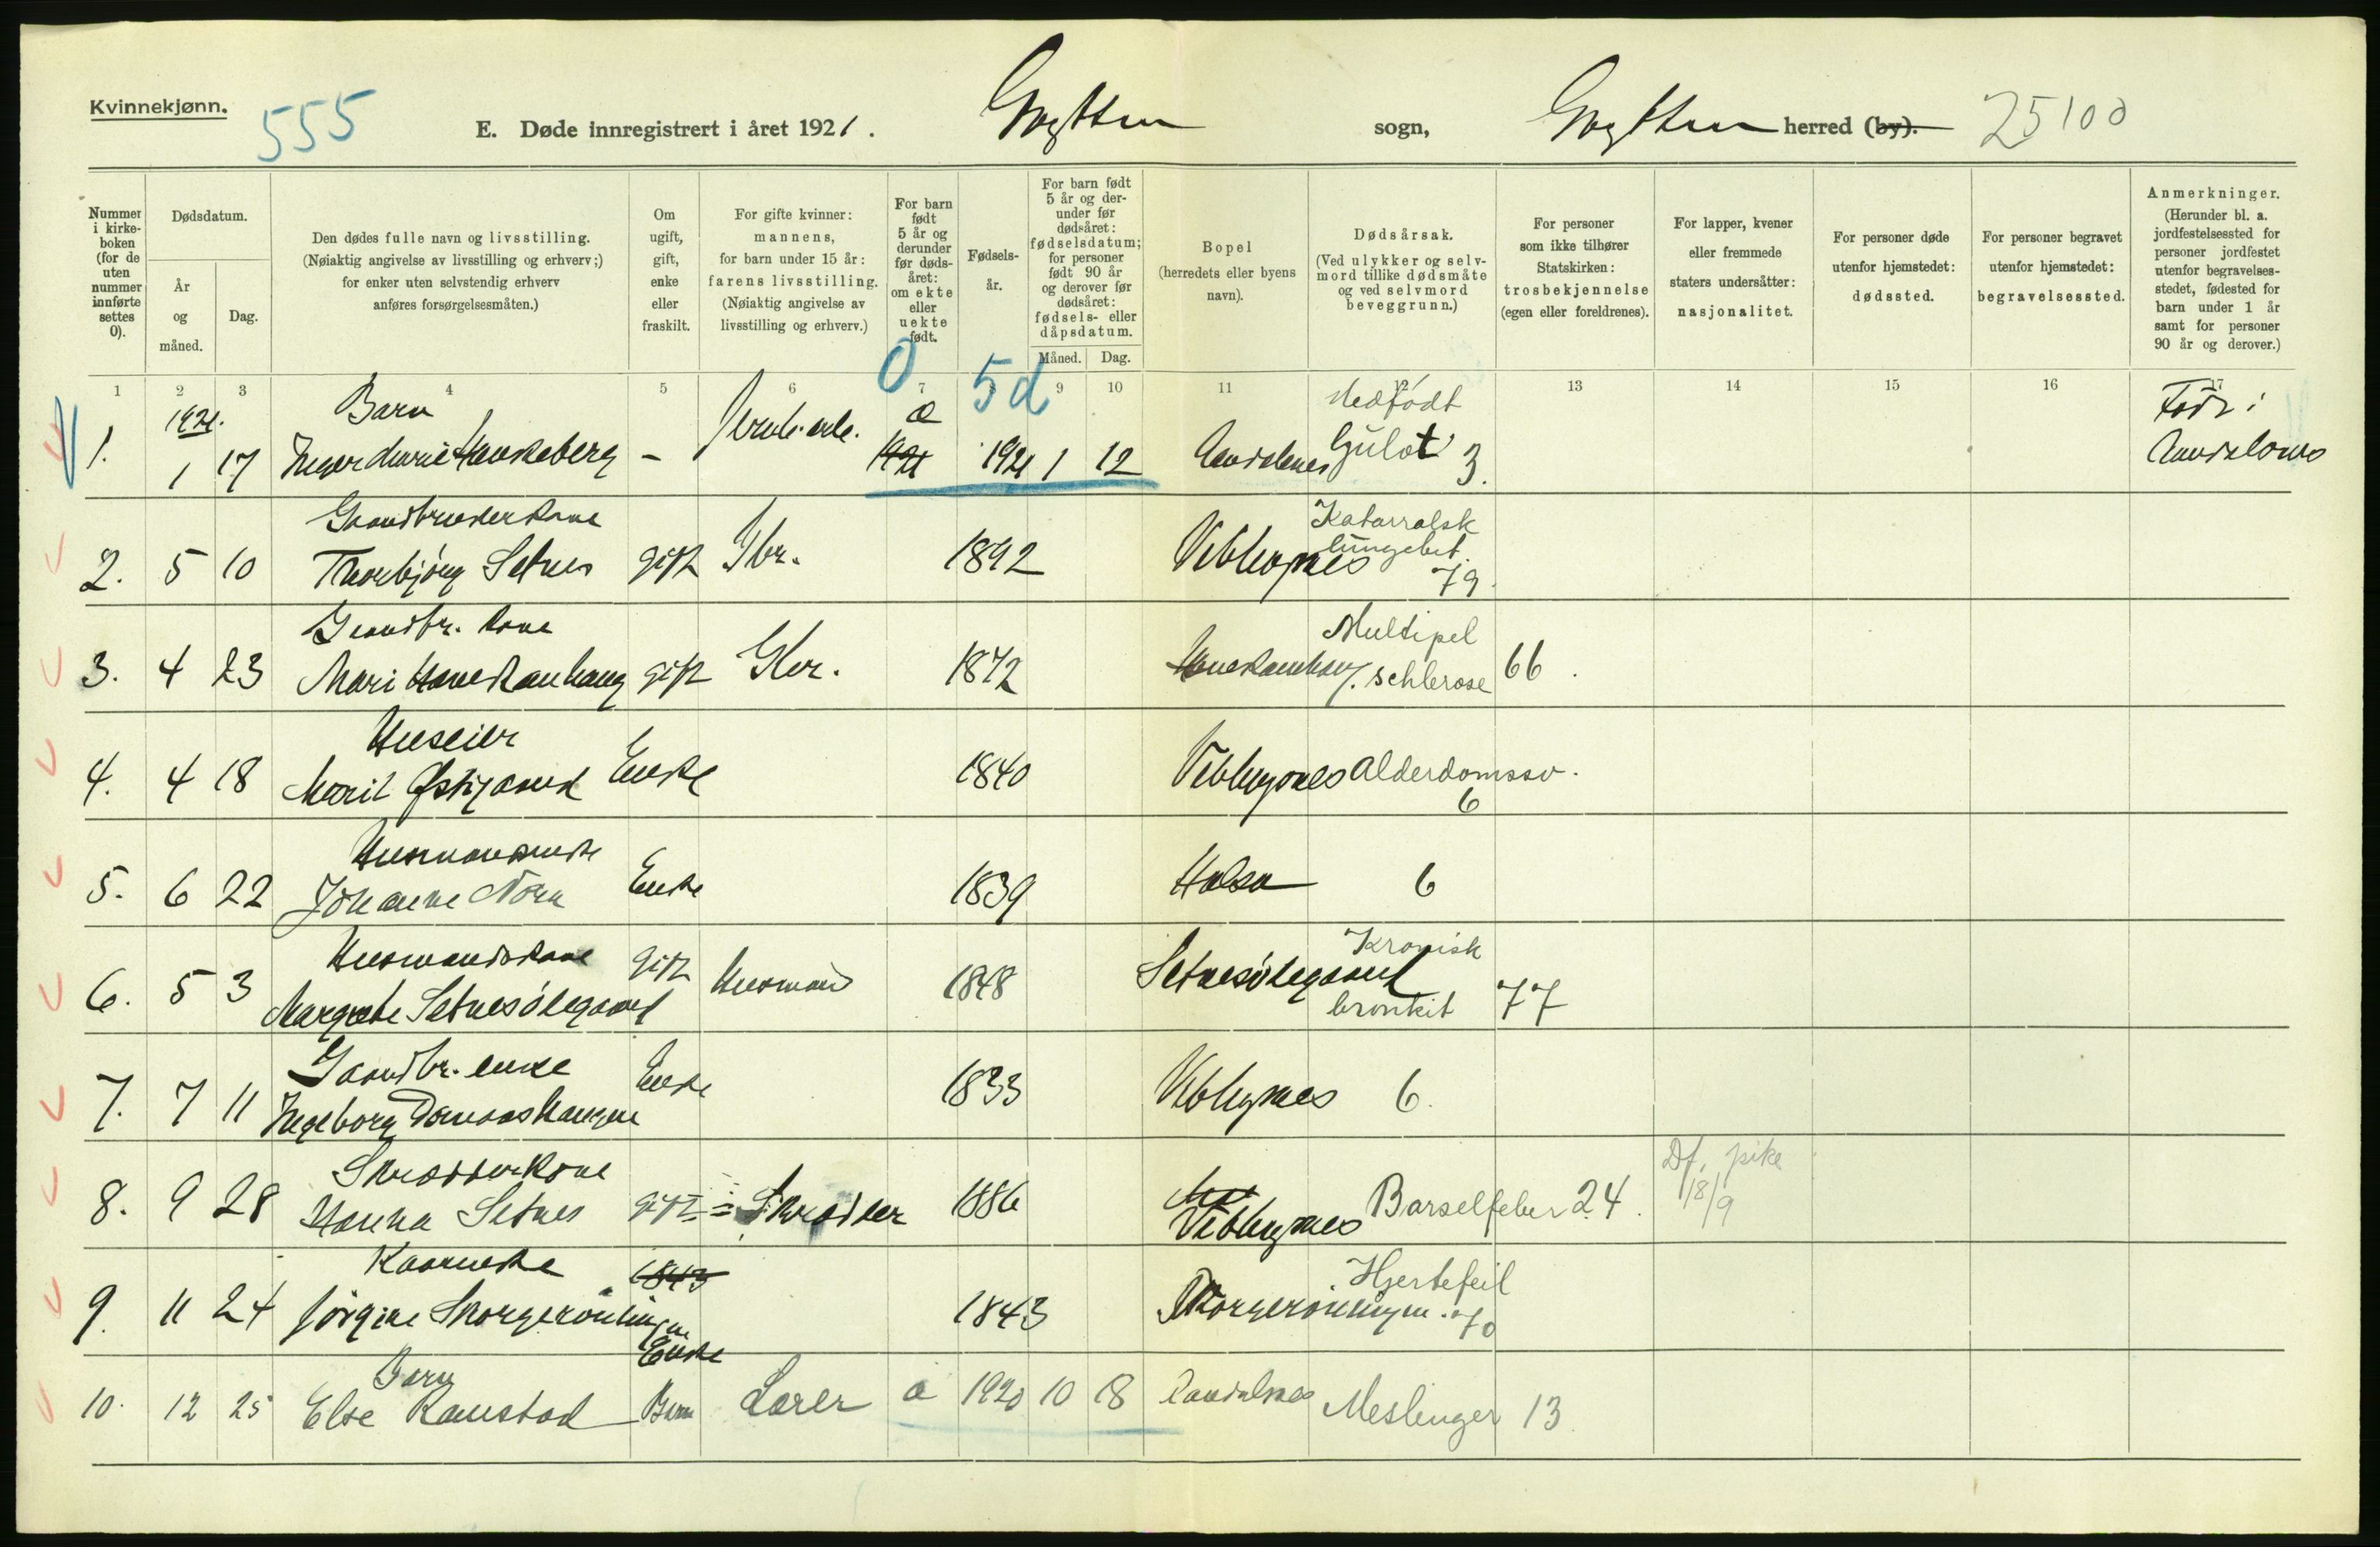 Kvinnekjønn.
555
E. Døde innregistrert i året 1921.
Grytten sogn, Grytten herred (by). 25100
Nummer i kirkeboken (for de uten nummer innførte settes 0).
Dødsdatum.
År og måned.
Dag.
Den dødes fulle navn og livsstilling.
(Nøiaktig angivelse av livsstilling og erhverv;)
for enker uten selvstendig erhverv
anføres forsørgelsesmåten.)
Om ugift, gift, enke eller fraskilt.
For gifte kvinner: mannens,
for barn under 15 år: farens livsstilling.
(Nøiaktig angivelse av livsstilling og erhverv.)
For barn født 5 år og derunder før dødsåret: om ekte eller uekte født.
Fødselsår.
For barn født 5 år og derunder før dødsåret: fødselsdatum; for personer født 90 år og derover før dødsåret: fødsels- eller dåpsdatum.
Måned. Dag.
Bopel
(herredets eller byens navn).
Dødsårsak.
(Ved ulykker og selvmord tillike dødsmåte og ved selvmord beveggrunn.)
For personer som ikke tilhører Statskirken: trosbekjennelse (egen eller foreldrenes).
For lapper, kvener eller fremmede staters undersåtter: nasjonalitet.
For personer døde utenfor hjemstedet: dødssted.
For personer begravet utenfor hjemstedet: begravelsessted.
Anmerkninger.
(Herunder bl. a. jordfestelsessted for personer jordfestet utenfor begravelsesstedet, fødested for barn under 1 år samt for personer 90 år og derover.)
0 5d
1 2 3 4 5 6 7 9 10 11 13 14 15 16 17
1921. Barn æ Medfødt Født i
1. 1 17 Inger Marie - 1921 1921 1 12 Aandalsnes Gulot 3. Aandalsnes
Gaardbrukerkone Katarralsk
2. 5 10 Thorbjörg Setnes gift Gbr. 1892 Veblugsnes lungebet. 79.
Gaardbr. kone Multipel
3. 4 23 Mari gift Gbr. 1872 schlerose 66.
Huseier
4. 4 18 Marit Enke 1840 Veblugsnes Alderdomssv. 6
Husmandsenke
5. 6 22 Johanne Enke 1839 6
Husmandskone gift Kronisk
6. 5 3 Margrete Setnesödegaard Husmand 1848 Setnesödegaard bronkit 77
Gaardbr. enke
7. 7 11 Ingeborg Enke 1833 Veblugsnes 6.
Skrædderkone Df. pike
8. 9 28 Hanna Setnes gift Skrædder 1886 Veblugsnes Barselfeber 24. 18/9
Kaarenke 1843 Hjertefeil
9. 11 24 Jörgine Enke 1843 70
Barn
10. 12 25 Else Ramstad Barn Lærer æ 1920 10 18 Aandalsnes Meslinger 13.